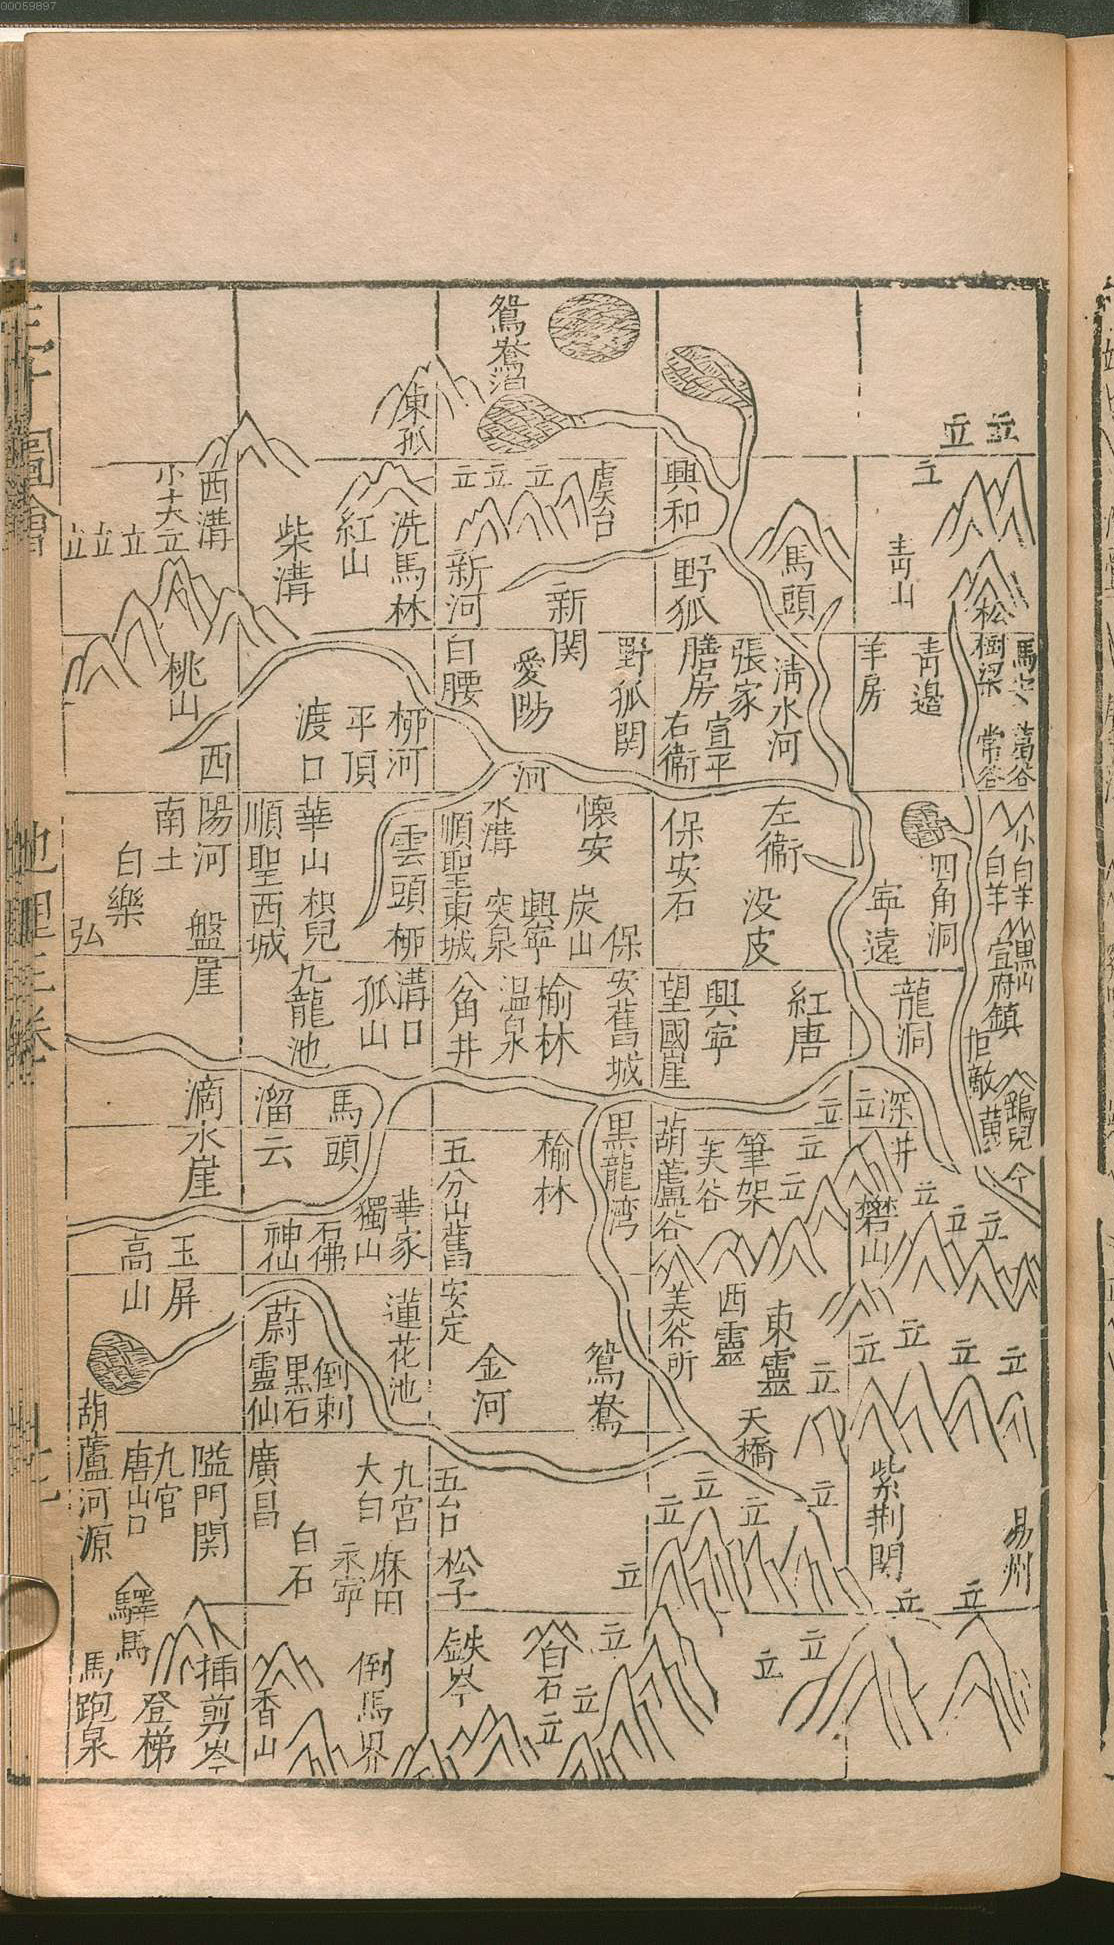 00059897
鴛鴦泊
東孤
立
立
西溝
小大立
立
立
立
柴溝
紅山
洗馬林
立
立
立
虞台
新河
新関
興和
野狐
馬頭
青山
松樹梁
桃山
西陽河
渡口
平頂
柳河
白腰
愛陽
河
野狐関
膳房
右衛
宣平
張家
清水河
羊房
青邉
常谷
葛谷
南土
白樂
弘
盤崖
順聖西城
華山
枳兒
雲頭
柳溝口
順聖東城
水溝
突泉
興寧
懷安
炭山
保安舊城
保安石
左衛
没皮
寧遠
四角洞
白羊
小白羊
黒山
宣府鎮
九龍池
孤山
八角井
温泉
榆林
望國崖
興寧
紅唐
龍洞
拒敵
鷂兒
滴水崖
溜云
馬頭
五分山舊
榆林
黒龍湾
葫蘆谷
芙谷
筆架
立
立
立
立
深井
礬山
立
立
立
高山
玉屏
神仙
石佛
獨山
華家
蔚
靈仙
黒石
倒剌
蓮花池
安定
金河
鴛鴦
美谷所
西靈
東靈
天橋
立
立
立
立
立
葫蘆河源
唐山口
九宮
隘門関
廣昌
白石
大白
九宮
永寧
麻田
五台
松子
立
立
立
立
立
紫荆関
易州
驛馬
馬跑泉
登梯
挿剪岺
香山
倒馬界
鉄岺
白石
立
立
立
立
立
立
立